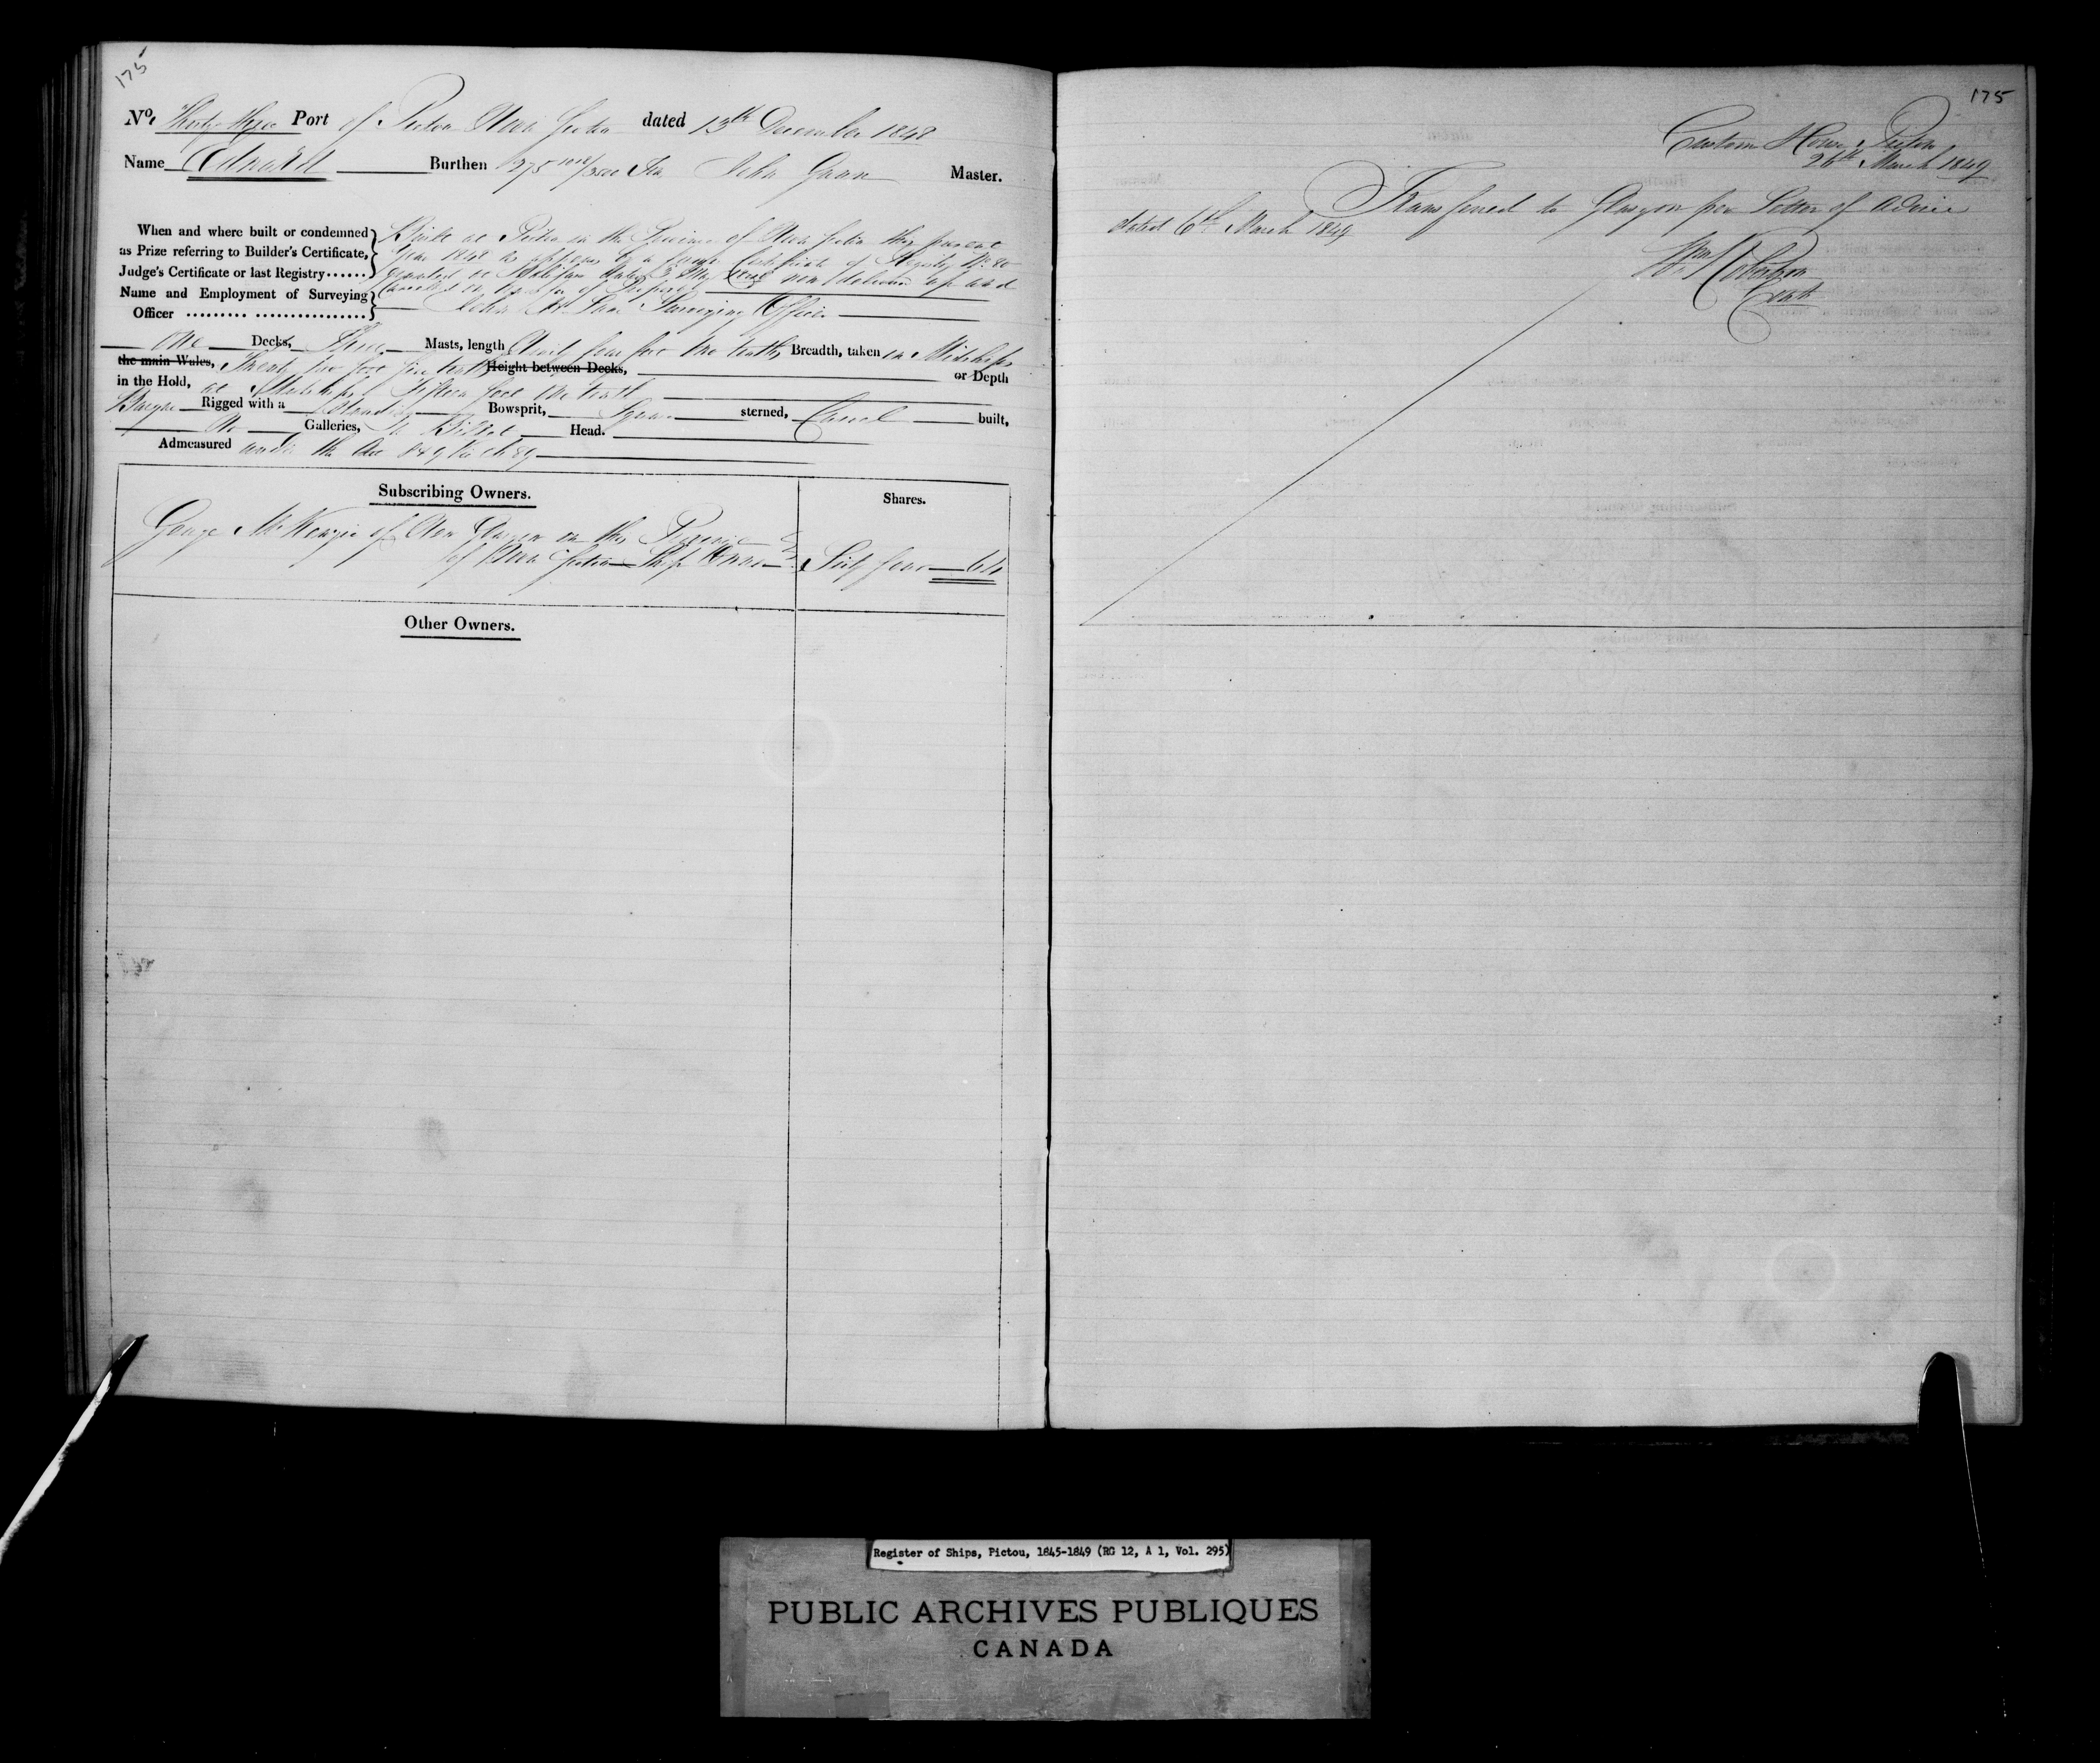 175
No. Thirty three Port of Pictou Nova Scotia dated 13th December 1848
Name Burthen 275 /3500 Tons John Master.
When and where built or condemned as Prize referring to Builder's Certificate, Judge's Certificate or last Registry......
Built at Pictou in the Province of Nova Scotia this present
Year 1848 as appears by a former Certificate of Registry No. 80
granted at Halifax dated 3 May now delivered up and
Cancelled on transfer of Property
Name and Employment of Surveying Officer ......... ................
John Surveying Officer
One Decks, Three Masts, length Ninety four feet one tenth, Breadth, taken in Midships
the main Wales, Twenty two feet five tenths Height between Decks, or Depth
in the Hold, at Midships Fifteen feet one tenth
Barque Rigged with a Standing Bowsprit, Square sterned, Carvel built,
No Galleries, a Billet Head.
Admeasured under the Act 8 & 9 Vic Ch 89
Subscribing Owners.
Shares.
George McKenzie of New Glasgow in the Province
of Nova Scotia Ship Owner
Sixty four 64
Other Owners.
175
Custom House Pictou
26th March 1849
Transferred to Glasgow per Letter of Advice
dated 6th March 1849
Wm Robertson
Register of Ships, Pictou, 1845-1849 (RG 12, A 1, Vol. 295)
PUBLIC ARCHIVES PUBLIQUES
CANADA